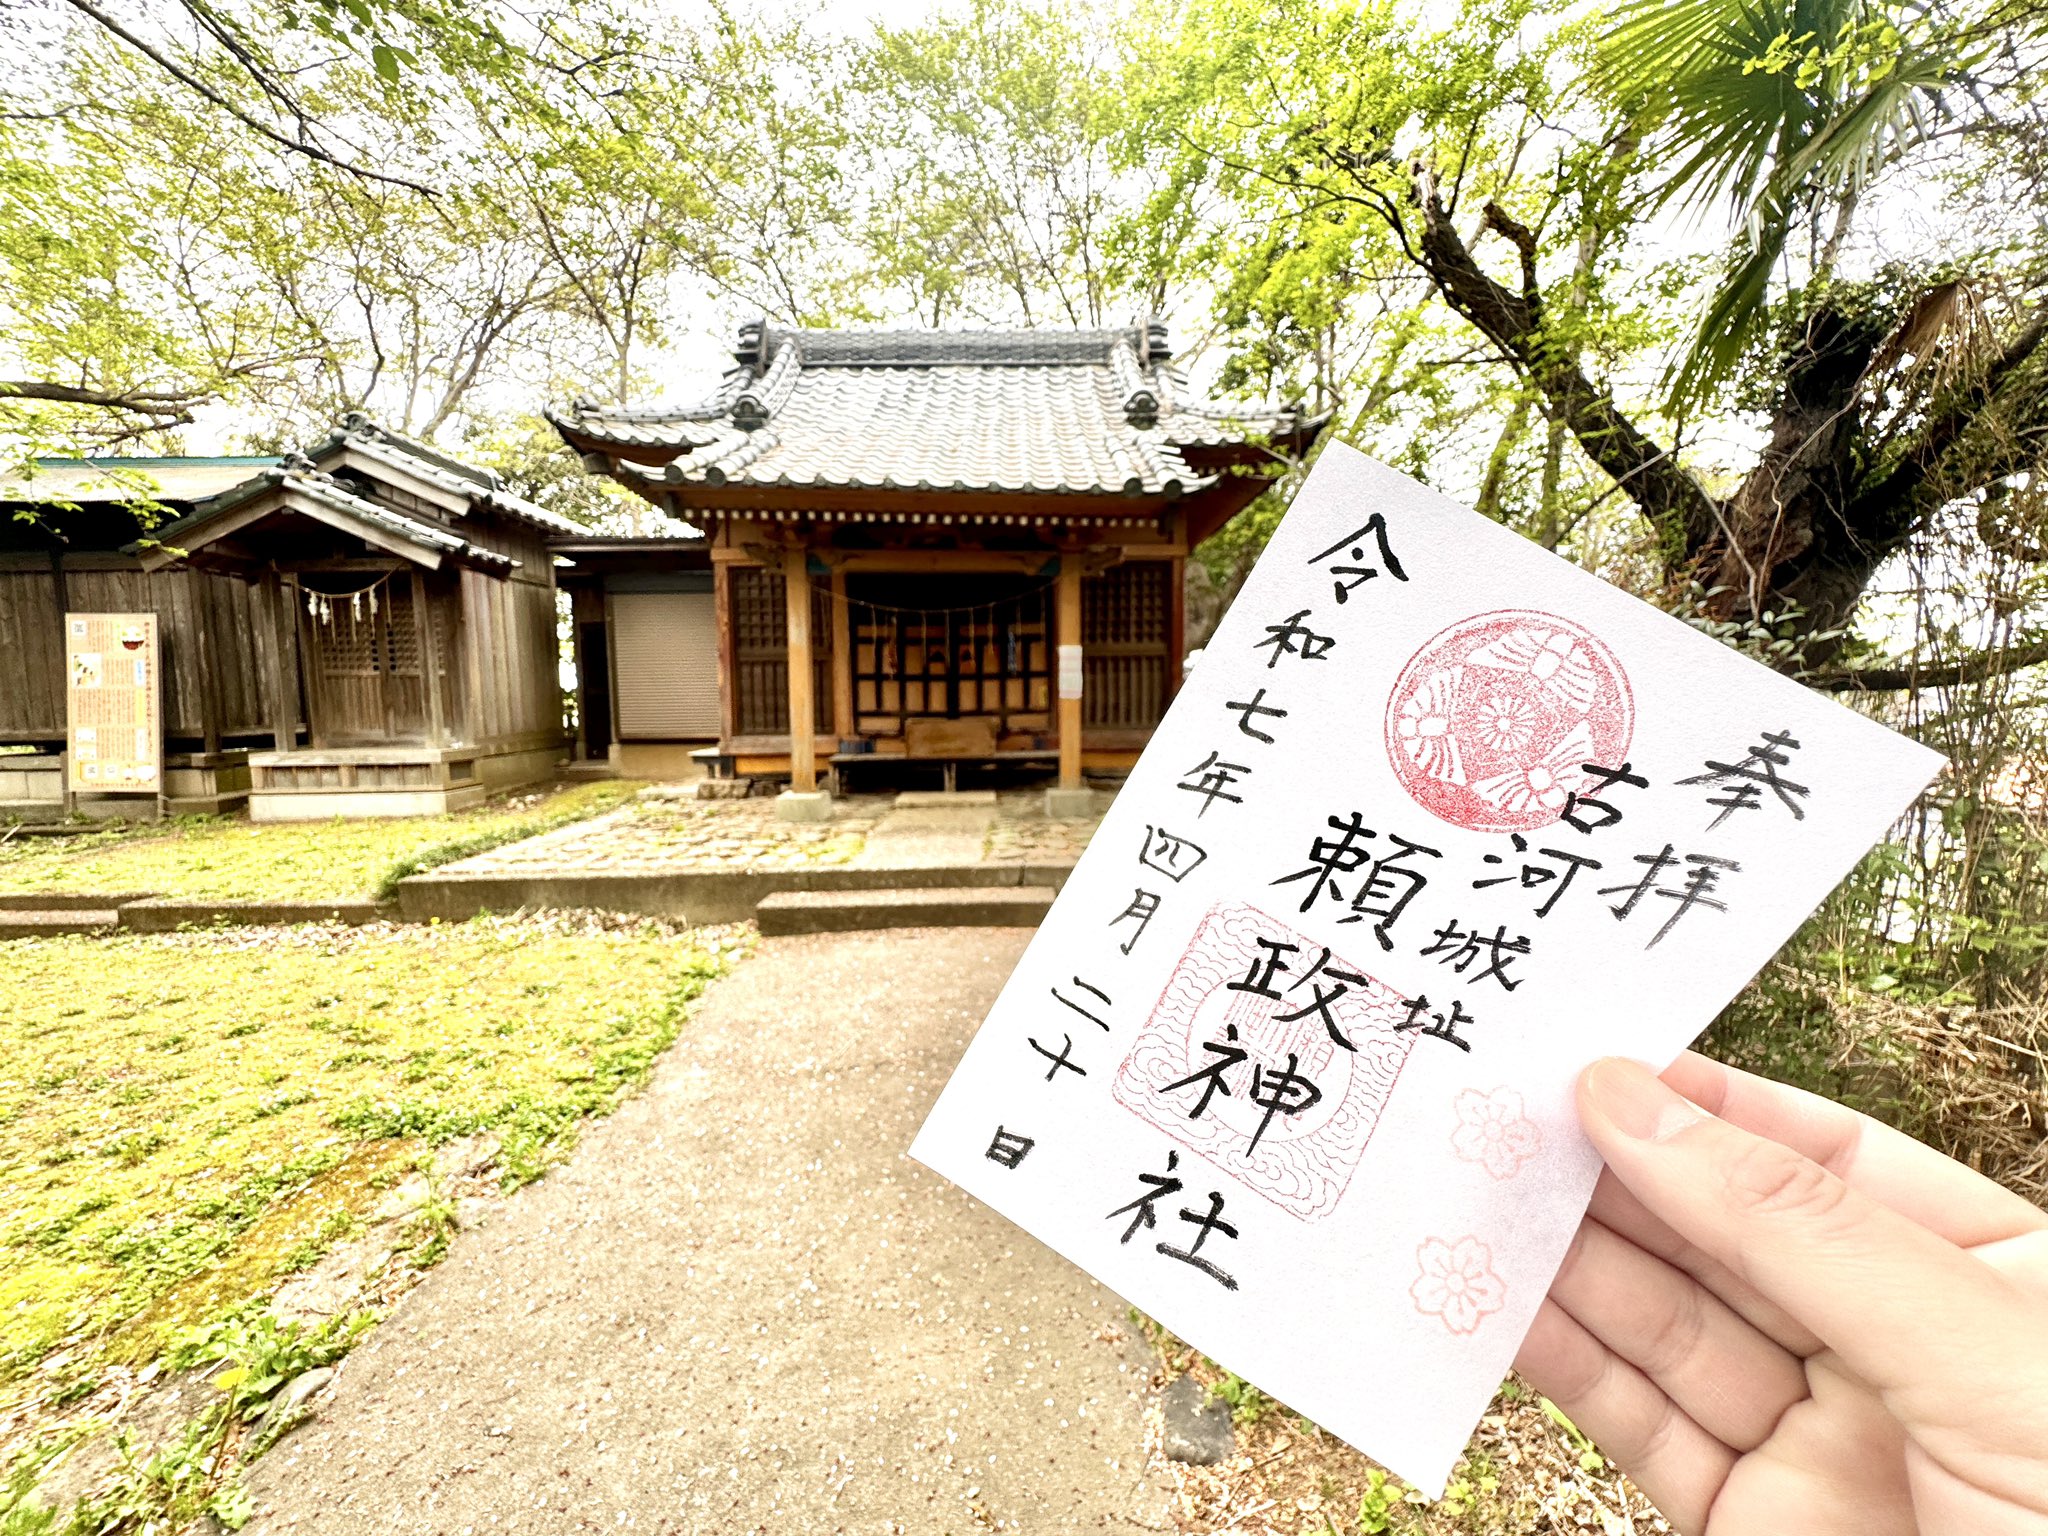 奉拝
古河城址
頼政神社
令和七年四月二十日